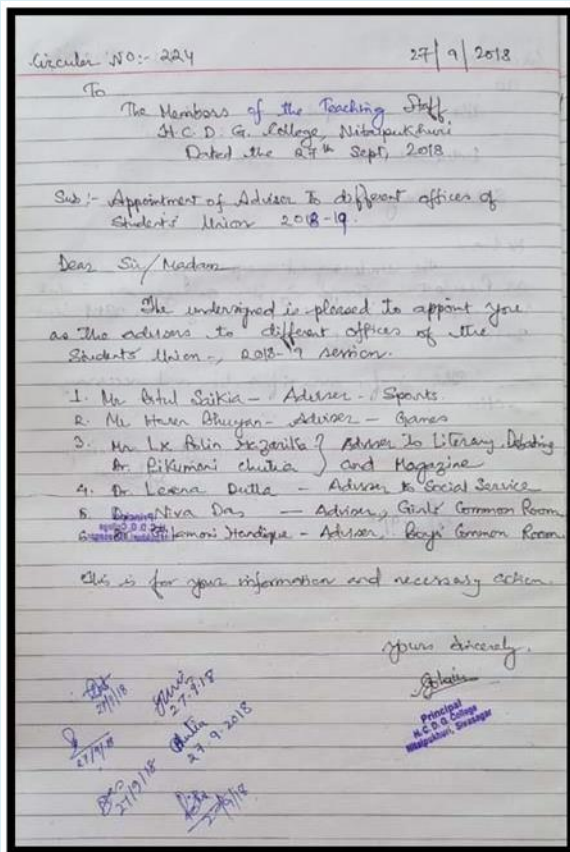 Circular NO:- 224 27/9/2018
To
The Members of the Teaching Staff
H.C.D.G. College, Nitaipukhuri
Dated the 27th Sept, 2018
Sub:- Appointment of Adviser to different offices of
Students' Union 2018-19.
Dear Sir/Madam
The undersigned is pleased to appoint you
as the advisers to different offices of the
Students' Union-, 2018-19 session.
1. Mr Saikia - Adviser - Sports
2. Mr Haren Bhuyan - Adviser - Games
3. Mr Lx Polin Hazarika } Adviser to Literary, Debating
Dr. Pikumani Chutia } and Magazine
4. Dr. Leena Dutta - Adviser to Social Service
5. Niva Das - Adviser, Girls' Common Room
6. Handique - Adviser, Boys' Common Room
This is for your information and necessary action.
Yours sincerely.
Principal
H.C.D.G. College
Nitaipukhuri, Sivasagar
27/9/18
27.9.18
27/9/18
27.9.2018
27/9/18
27/9/18